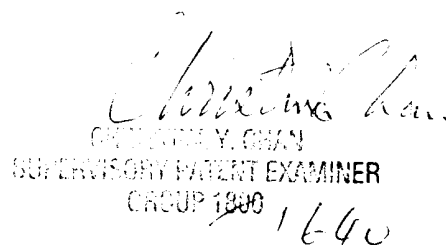 Christina Chan
CHRISTINA Y. CHAN
SUPERVISORY PATENT EXAMINER
GROUP 1800
1640